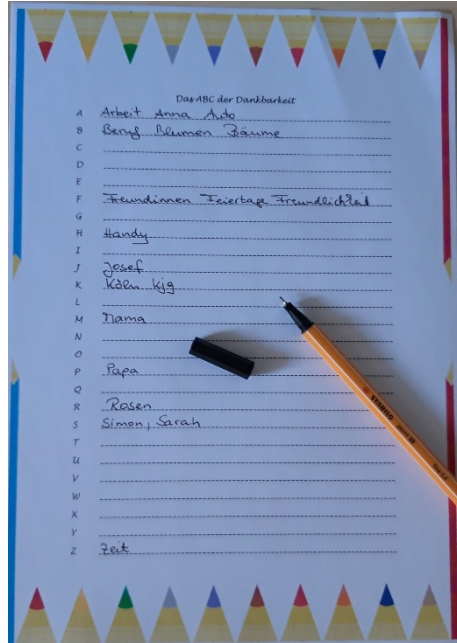 Das ABC der Dankbarkeit
A Arbeit Anna Auto
B Beruf Blumen Bäume
C
D
E
F Freundinnen Feiertage Freundlichkeit
G
H Handy
I
J Josef
K Köln kjg
L
M Mama
N
O
P Papa
Q
R Rosen
S Simon, Sarah
T
U
V
W
X
Y
Z Zeit
STABILO